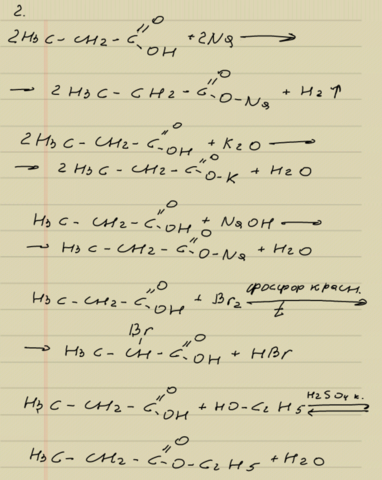 2.
2H3C - CH2 - C=O-OH + 2Na →
→ 2H3C - CH2 - C=O-O-Na + H2↑
2H3C - CH2 - C=O-OH + K2O →
→ 2H3C - CH2 - C=O-O-K + H2O
H3C - CH2 - C=O-OH + NaOH →
→ H3C - CH2 - C=O-O-Na + H2O
H3C - CH2 - C=O-OH + Br2 фосфор красн. t →
Br
→ H3C - CH - C=O-OH + HBr
H3C - CH2 - C=O-OH + HO-C2H5 H2SO4 к. ⇌
H3C - CH2 - C=O-O-C2H5 + H2O